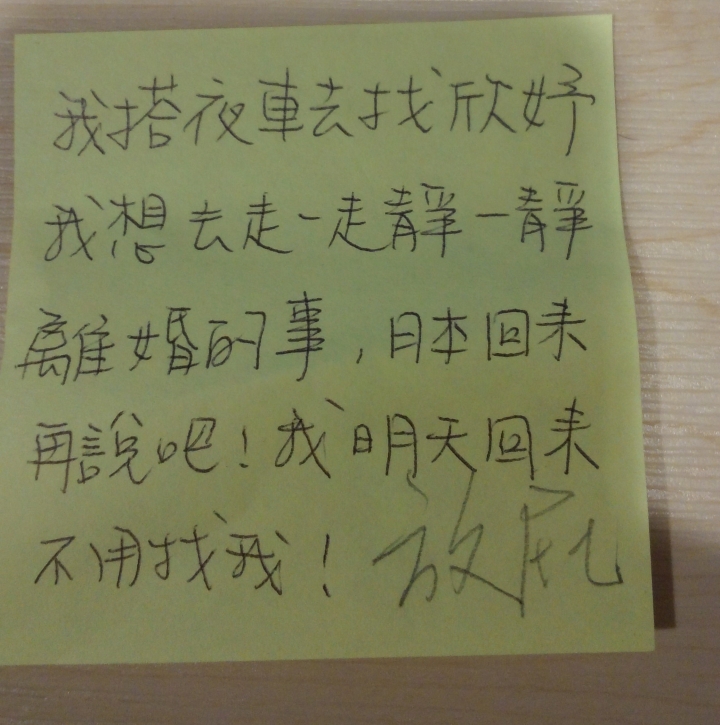 我搭夜車去找欣妤
我想去走一走靜一靜
離婚的事，日本回来
再說吧！我明天回来
不用找我！放屁